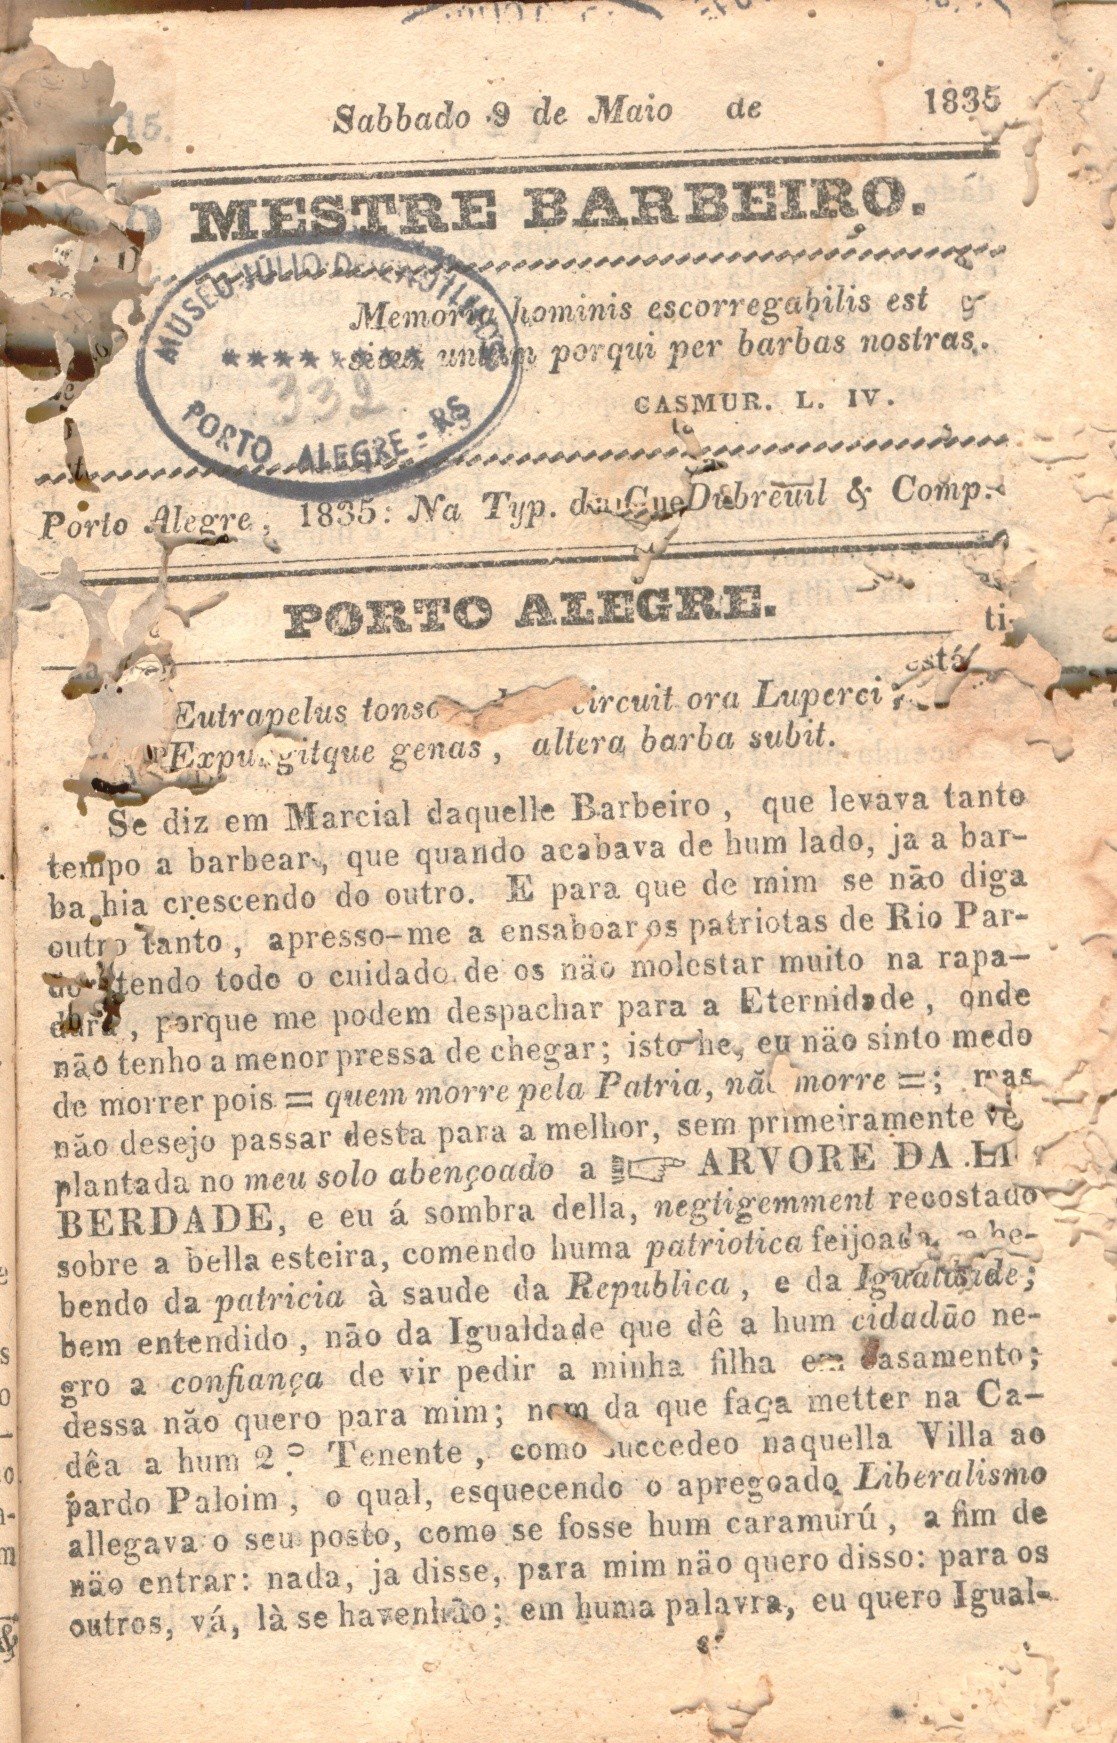 15.
Sabbado 9 de Maio de 1835
O MESTRE BARBEIRO.
Memoria hominis escorregabilis est
porqui per barbas nostras.
CASMUR. L. IV.
MUSEU JÚLIO DE CASTILHOS
332
PORTO ALEGRE - RS
Porto Alegre, 1835: Na Typ. de Dubreuil & Comp.
PORTO ALEGRE.
ti-
está
Eutrapelus circuit ora Luperci;
Expungitque genas, altera barba subit.
Se diz em Marcial daquelle Barbeiro, que levava tanto
tempo a barbear, que quando acabava de hum lado, ja a bar-
ba hia crescendo do outro. E para que de mim se não diga
outro tanto, apresso-me a ensaboar os patriotas de Rio Par-
do tendo todo o cuidado de os não molestar muito na rapa-
dura, porque me podem despachar para a Eternidade, onde
não tenho a menor pressa de chegar; isto he, eu não sinto medo
de morrer pois = quem morre pela Patria, não morre =; mas
não desejo passar desta para a melhor, sem primeiramente vê
plantada no meu solo abençoado a ☞ ARVORE DA LI
BERDADE, e eu á sombra della, negligemment recostado
sobre a bella esteira, comendo huma patriotica feijoada, e be-
bendo da patricia à saude da Republica, e da Igualdade;
bem entendido, não da Igualdade que dê a hum cidadão ne-
gro a confiança de vir pedir a minha filha em casamento;
dessa não quero para mim; nem da que faça metter na Ca-
dêa a hum 2.º Tenente, como succedeo naquella Villa ao
pardo Paloim, o qual, esquecendo o apregoado Liberalismo
allegava o seu posto, como se fosse hum caramurú, a fim de
não entrar: nada, ja disse, para mim não quero disso: para os
outros, vá, là se havenhão; em huma palavra, eu quero Igual-